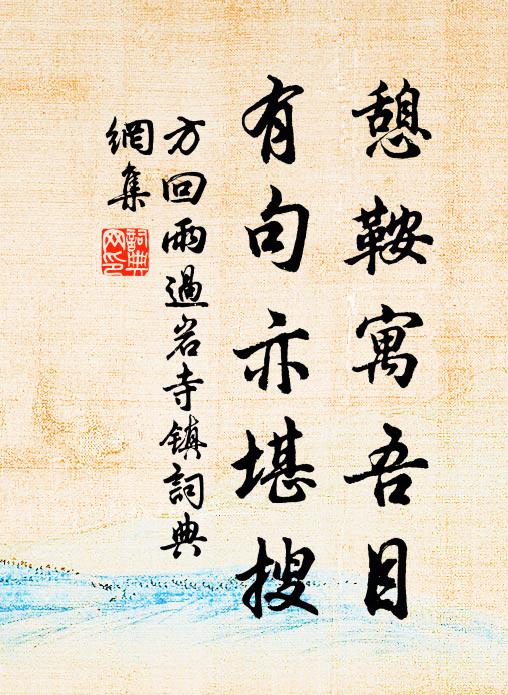 憩鞍寓吾目
有句亦堪搜
方回雨過岩寺鎮詞典
網集
詞典
网印